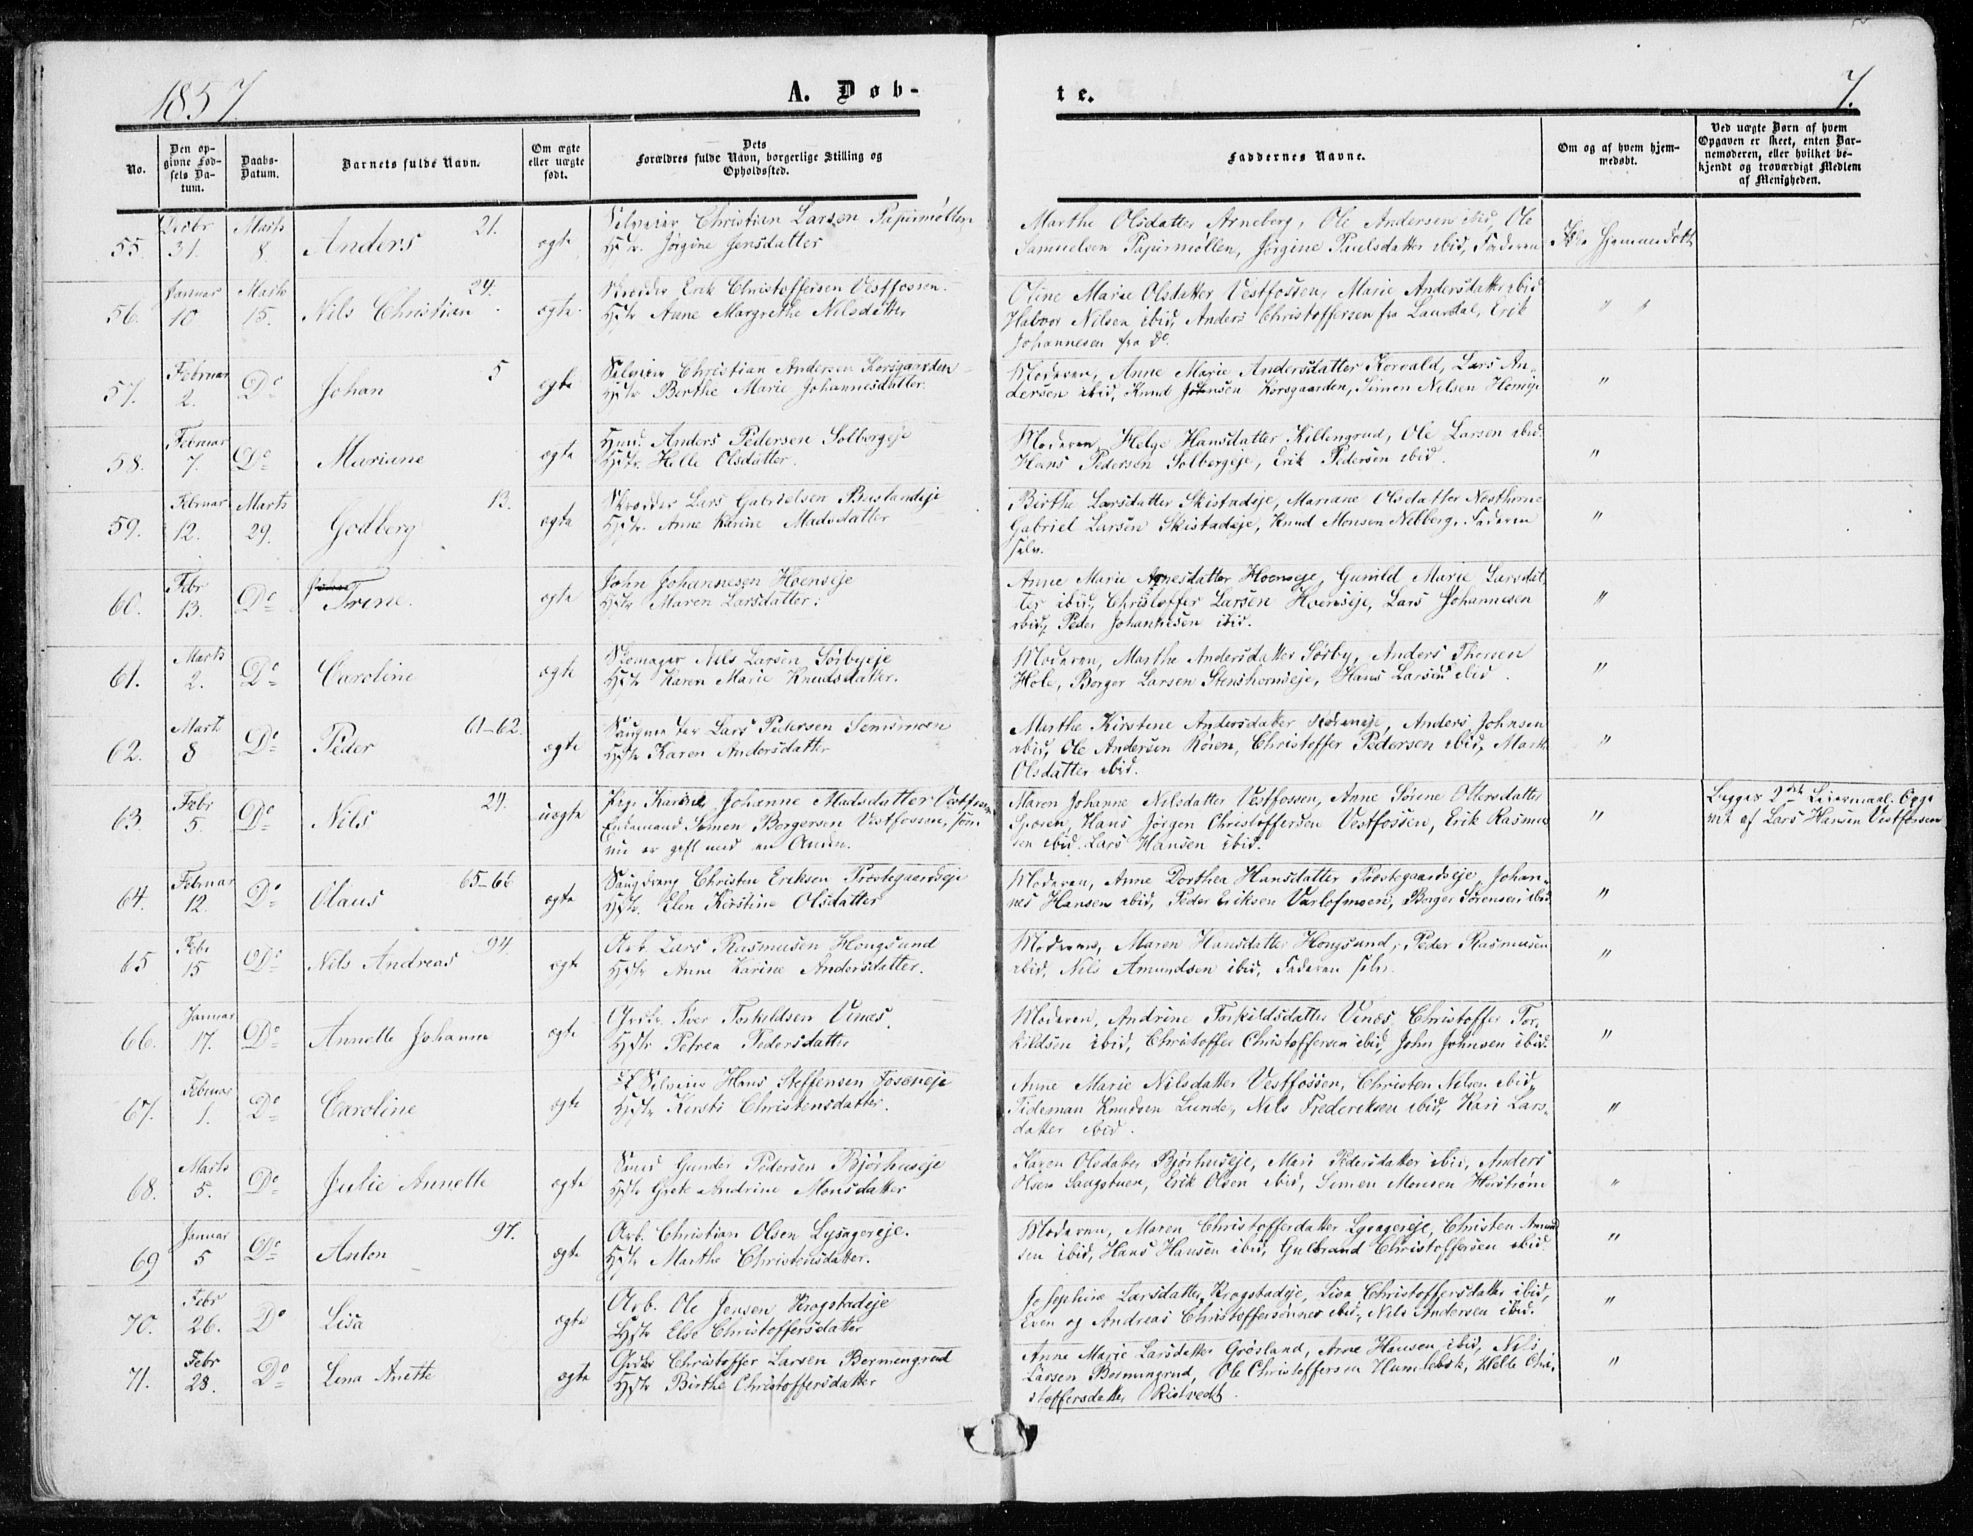 1857.
A. Døb-
te.
7.
No.
Den op-
givne Fød-
sels Da-
tum.
Daabs-
Datum.
Barnets fulde Navn.
Om ægte
eller uægte
født.
Dets
Forældres fulde Navn, borgerlige Stilling og
Opholdssted.
Faddernes Navne.
Om og af hvem hjem-
medøbt.
Ved uægte Børn af hvem
Opgaven er skeet, enten Bar-
nemoderen, eller hvilket be-
kjendt og troværdigt Medlem
af Menigheden.
55. Decbr 31. Marts 8. Anders 21. ægte
Selveier Christian Larsen Papirmøllen
Hstr. Jørgine Jensdatter
Marthe Olsdatter Arneberg, Ole Andersen ibid, Ole
Samuelsen Papirmøllen, Jørgine Paulsdatter ibid, Faderen
Ikke hjemmedøbt
56. Januar 10 Marts 15. Nils Christian 24. ægte
Skrædder Erik Christoffersen Vestfossen.
Hstr Anne Margrethe Nilsdatter
Oline Marie Olsdatter Vestfossen, Marie Andersdatter ibid
Halvor Nilsen ibid, Anders Christoffersen fra Laurdal, Erik
Johannesen fra Do.
" "
57. Februar 2. Do Johan 5 ægte
Selveier Christian Andersen Korsgaarden
Hstr Berthe Marie Johannesdatter
Moderen, Anne Marie Andersdatter Korvald, Lars An-
dersen ibid, Knud Jensen Korsgaarden, Simen Nelsen
"
58. Februar 7. Do Mariane ægte
Huusm. Anders Pedersen Solbergeje
Hstr. Helle Olsdatter.
Moderen, Helge Hansdatter Killengrud, Ole Larsen ibid.
Hans Pedersen Solbergeje, Erik Pedersen ibid.
"
59. Februar 12. Marts 29. Godberg 13. ægte
Skrædder Lars Gabrielsen Buslandeje
Hstr. Anne Karine Madsdatter
Birthe Larsdatter Skistadeje, Mariane Olsdatter Næsthorne
Gabriel Larsen Skistadeje, Knud Monsen Nebberg, Faderen
selv.
"
60. Febr 13. Do Trine. ægte
John Johannesen Hoenseje
Hstr Maren Larsdatter.
Anne Marie Arnesdatter Hoenseje, Gunild Marie Larsdat
ter ibid, Christoffer Larsen Hoenseje, Lars Johannesen
ibid, Peder Johannesen ibid.
"
61. Marts 2. Do Caroline ægte
Skomager Nils Larsen Sørbyeje
Hstr Karen Marie Knudsdatter.
Moderen, Marthe Andersdatter Sørby, Anders Thorsen
Hole, Borger Larsen Stenshorneje, Hans Larsen ibid.
"
62. Marts 8 Do Peder 61-62. ægte
Lars Pedersen Semsmoen
Hstr Karen Andersdatter
Marthe Kirstine Andersdatter, Anders Johnsen
ibid, Ole Andersen Røren, Christoffer Pedersen ibid, Marthe
Olsdatter ibid.
"
63. Febr 5. Do Nils 29. uægte
Pige Karine Johanne Madsdatter Vestfossen
Enkemand Simen Borgersen Vestfossen, som
nu er gift med en Anden.
Maren Johanne Nilsdatter Vestfossen, Anne Sørene Ottersdatter
Sporen, Hans Jørgen Christoffersen Vestfossen, Erik Rasmus
sen ibid. Lars Hansen ibid.
"
Begges 2det Leiermaal. Opgi
vet af Lars Hansen Vestfossen
64. Februar 12. Do Olaus 65-66 ægte
Saugdreng Christen Eriksen Præstegaardseje
Hstr. Elen Kirstine Olsdatter
Moderen, Anne Dorthea Hansdatter Præstegaardseje, Johan-
nes Hansen ibid, Peder Eriksen Varlofmoen, Borger Sørensen ibid
"
65 Febr 15 Do Nils Andreas 94. ægte
Arb. Lars Rasmusen Hougsund
Hstr Anne Karine Andersdatter.
Moderen, Maren Hansdatter Hougsund, Peder Rasmusen
ibid, Nils Amundsen ibid, Faderen selv.
"
66. Januar 17. Do Annette Johanne ægte
Grbr. Iver Torkildsen Vinæs.
Hstr Petrea Pedersdatter
Moderen, Andrine Torkildsdatter Vinæs Christoffer Tor-
kildsen ibid, Christoffer Christoffersen ibid, John Johnsen ibid.
"
67. Februar 1. Do Caroline ægte
Selveier Hans Steffensen Foseneje
Hstr Kirsti Christensdatter.
Anne Marie Nilsdatter Vestfossen, Christen Nilsen ibid,
Tideman Knudsen Lunde, Nils Frederiksen ibid, Kari Lars-
datter ibid.
"
68. Marts 5. Do Julie Annette ægte
Smed Gunder Pedersen Bjørhuseje
Hstr Grete Andrine Monsdatter
Karen Olsdatter Bjørhuseje, Mari Pedersdatter ibid, Anders
Olsen Saugstuen, Erik Olsen ibid, Simen Monsen Haström
"
69 Januar 5 Do Anton 97. ægte
Arb. Christian Olsen Lysagereje.
Hstr Marthe Christensdatter.
Moderen, Maren Christofferdatter Lysagereje, Christen Amund
sen ibid, Hans Hansen ibid, Gulbrand Christoffersen ibid.
"
70. Febr 26. Do Lisa ægte
Arb. Ole Jensen Krogstadeje
Hstr Else Christoffersdatter
Josephine Larsdatter Krogstadeje, Lisa Christoffersdatter ibid,
Even og Andreas Christoffersønner ibid, Nils Andersen ibid.
"
71. Febr 28. Do Lina Anette ægte
Grbr Christoffer Larsen Bermengrud
Hstr Birthe Christoffersdatter
Anne Marie Larsdatter Grøsland, Arne Hansen ibid, Nils
Larsen Bermingrud, Ole Christoffersen Humlebek, Helle Chri-
stoffersdatter Ristvedt.
"